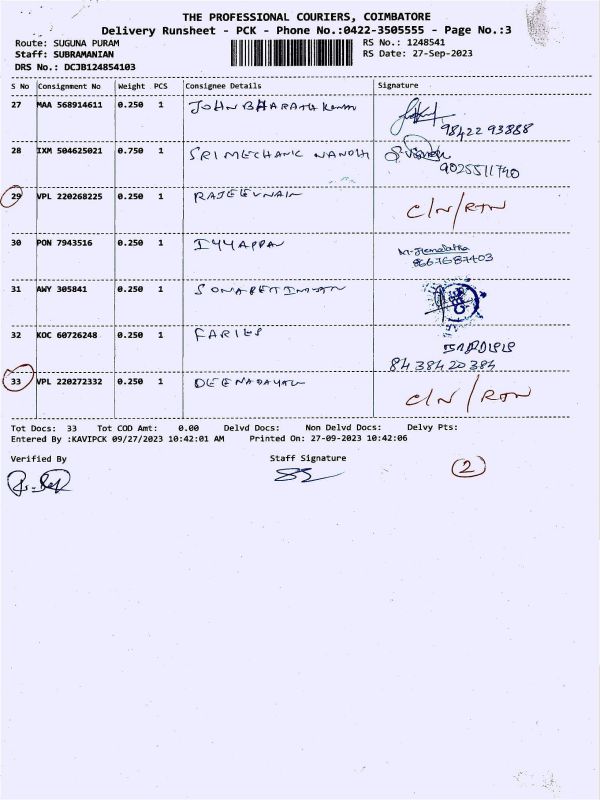 THE PROFESSIONAL COURIERS, COIMBATORE
Delivery Runsheet - PCK - Phone No.:0422-3505555 - Page No.:3
Route: SUGUNA PURAM RS No.: 1248541
Staff: SUBRAMANIAN RS Date: 27-Sep-2023
DRS No.: DCJB124854103
S No Consignment No Weight PCS Consignee Details Signature
27 MAA 568914611 0.250 1 JOHN BHARATH Kumar
98422 93888
28 IXM 504625021 0.750 1 SRI MECHANIC NANDHI
9025511790
29 VPL 220268225 0.250 1 RAJEEVNAIR C/N/RTN
30 PON 7943516 0.250 1 IYYAPPAN M. Hemalatha
8667687403
31 AWY 305841 0.250 1
32 KOC 60726248 0.250 1 FARIES
84384 20384
33 VPL 220272332 0.250 1 DEENADAYAL C/N/RTN
Tot Docs: 33 Tot COD Amt: 0.00 Delvd Docs: Non Delvd Docs: Delvy Pts:
Entered By :KAVIPCK 09/27/2023 10:42:01 AM Printed On: 27-09-2023 10:42:06
Verified By Staff Signature
2